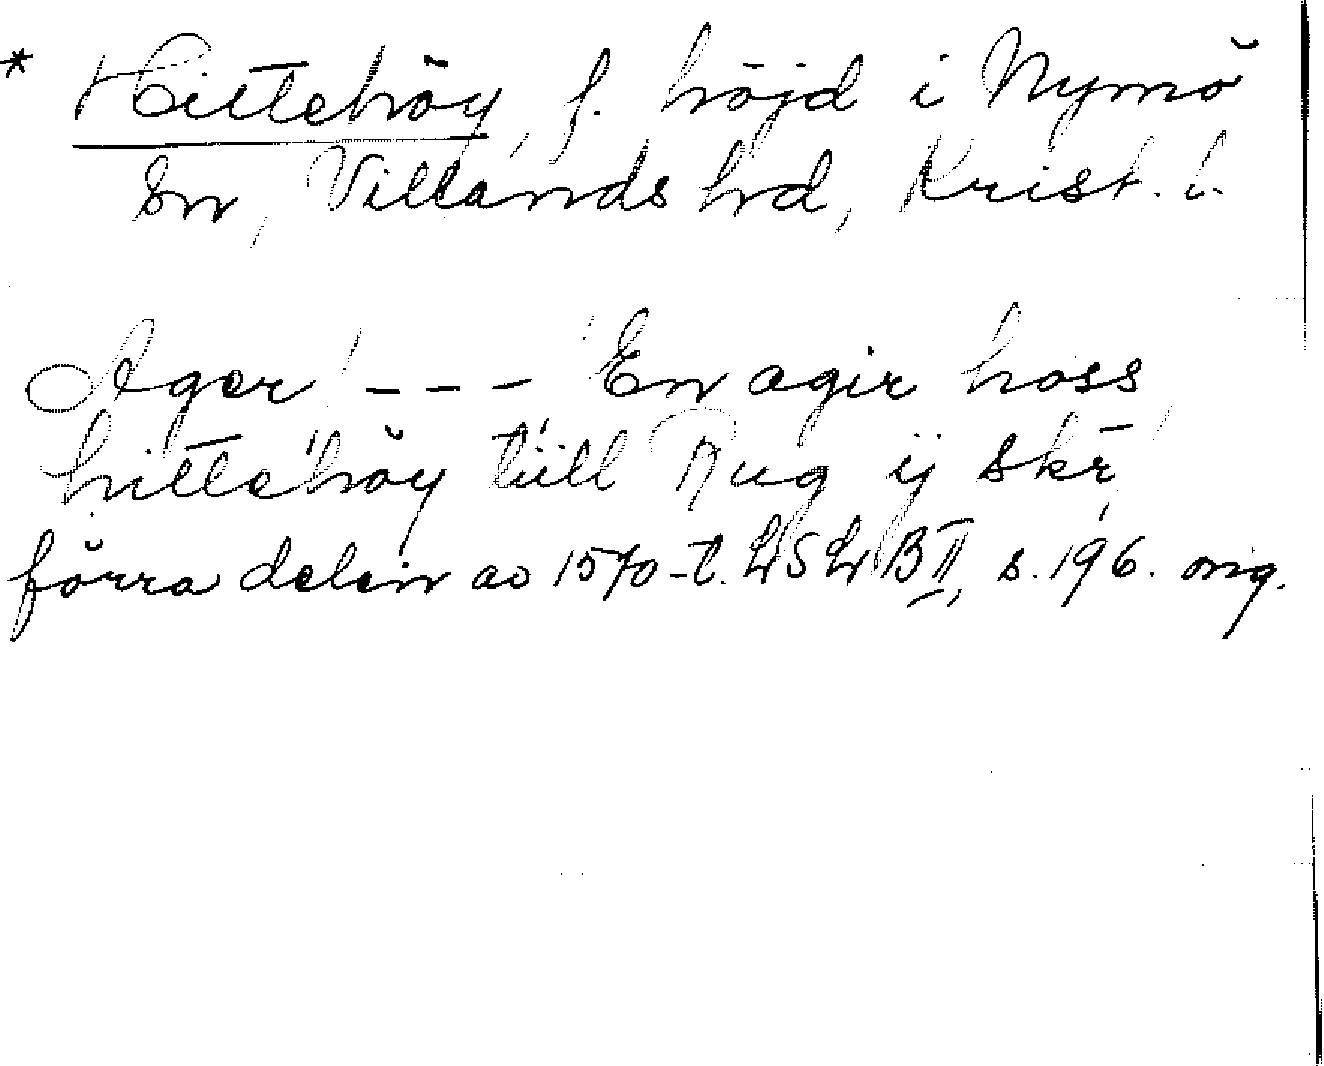 * Hittehöy, f. höjd i Nymö
sn, Villands hd, Krist. l.
Ager --- En agir hoss
hittehöy tiill Rug ij skr̄
förra delen av 1570-t. LSLB II, s. 196. orig.